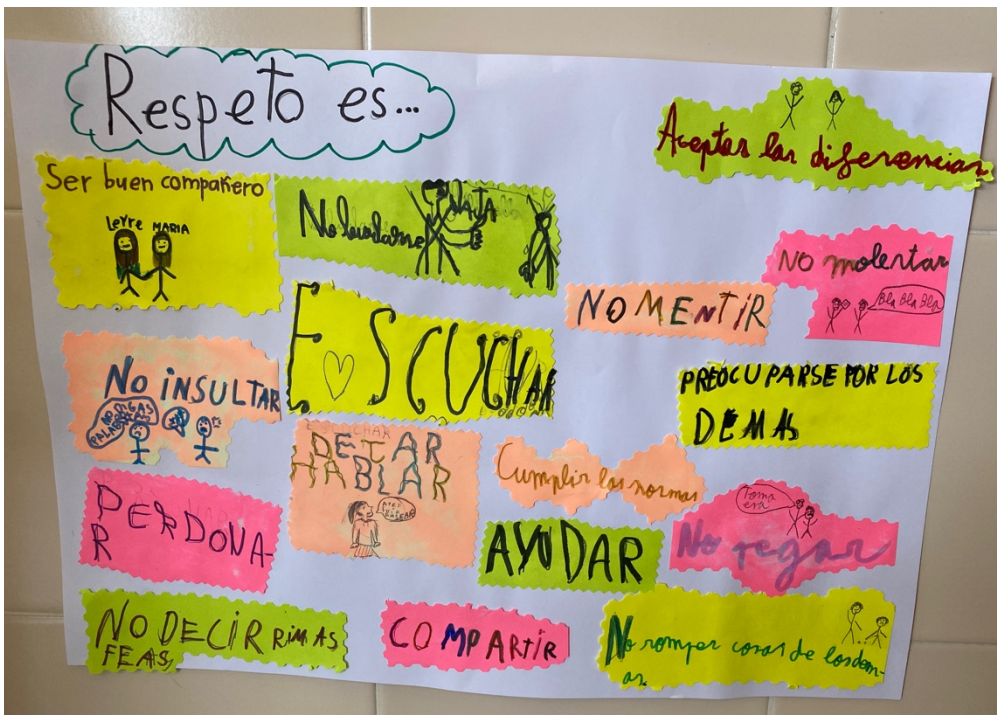 Respeto es...
Aceptar las diferencias
Ser buen compañero
Leyre MARIA
No burlarse
JAJA
NO molestar
Bla Bla Bla
NO MENTIR
ESCUCHAR
NO iNSULTAR
PREOCUPARSE POR LOS
DEMAS
ESCUCHAR
DEJAR
HABLAR
Cumplir las normas
Toma
esa
No pegar
PERDONA-
R
AYUDAR
NO DECIR RIMAS
FEAS,
COMPARTIR
No romper cosas de los dem-
as.